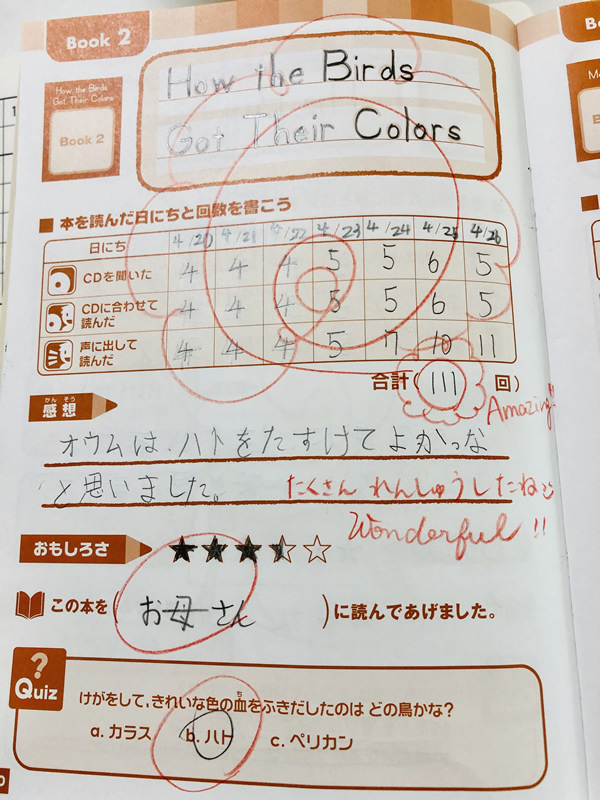 Book 2
How the Birds
Got Their Colors
Book 2
How the Birds
Got Their Colors
■ 本を読んだ日にちと回数を書こう
日にち 4/20 4/21 4/22 4/23 4/24 4/25 4/26
CDを聞いた 4 4 4 5 5 6 5
CDに合わせて読んだ 4 4 4 5 5 6 5
声に出して読んだ 4 4 4 5 7 10 11
合計(111回)
Amazing!!
かんそう
感想
オウムは、ハトをたすけてよかったな
と思いました。
たくさん れんしゅうしたね
Wonderful!!
おもしろさ ★★★☆
この本を(お母さん)に読んであげました。
?
Quiz
けがをして、きれいな色の血をふきだしたのは どの鳥かな?
ち
a. カラス b. ハト c. ペリカン